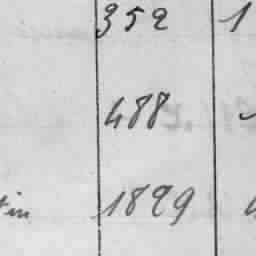 352 1
488
1899